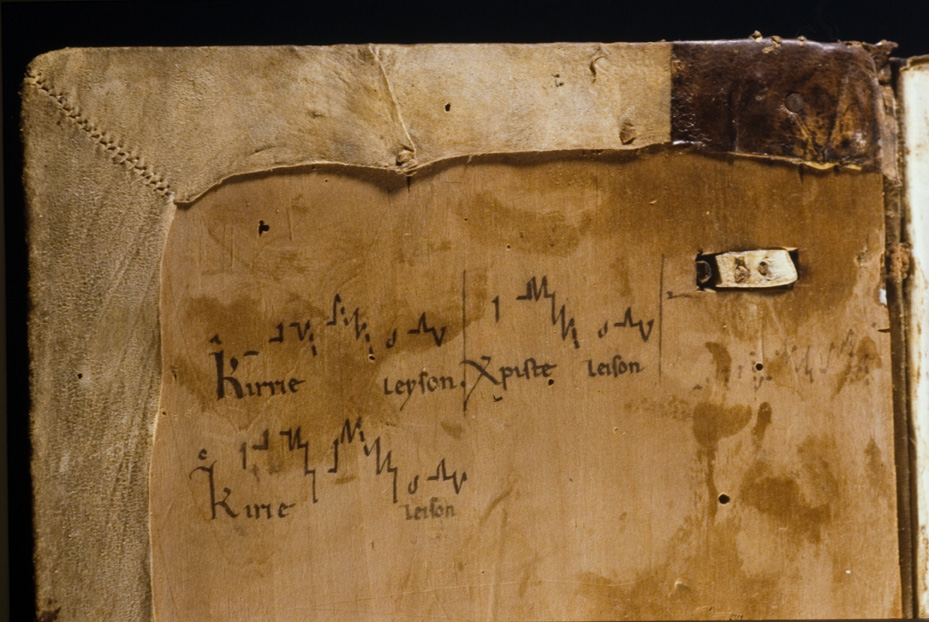 Kirrie leyson. Xpiste leison
Kirie leison